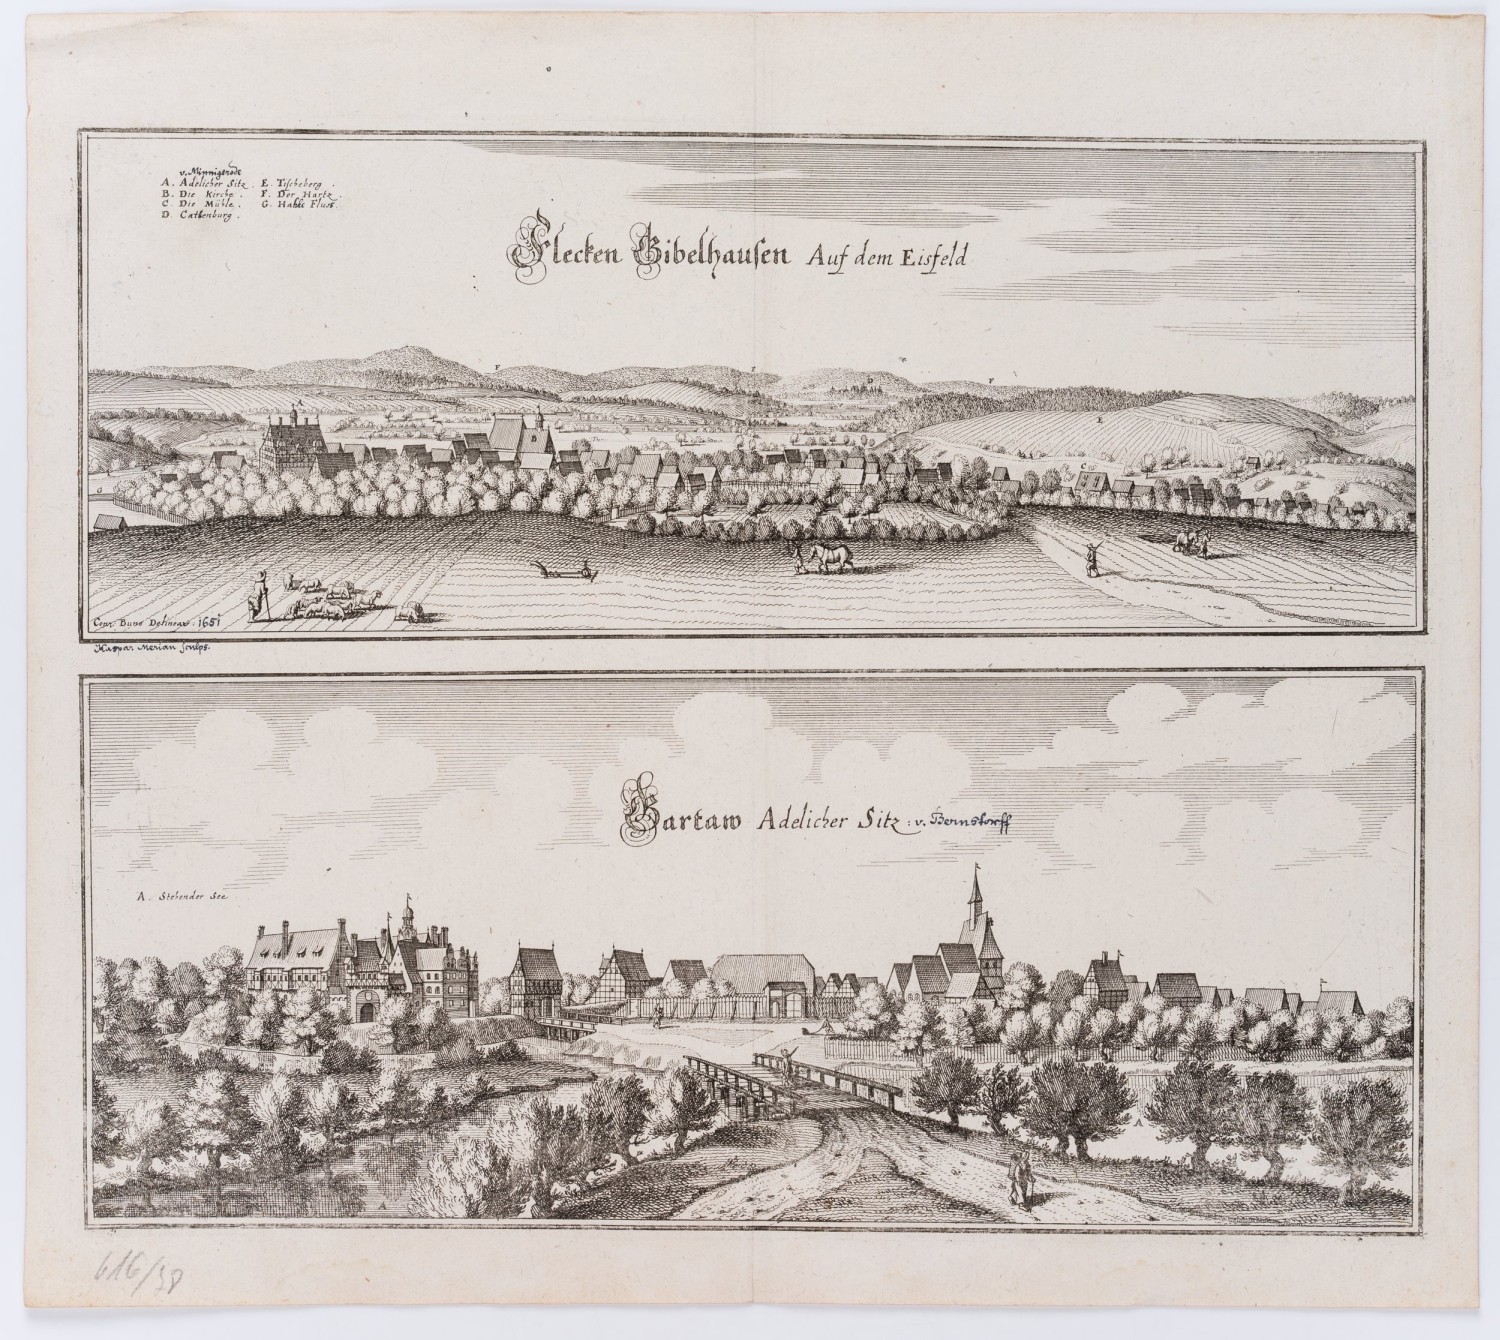 v. Minnigerode
A. Adelicher Sitz. E. Tischeberg.
B. Die Kirche. F. Der Hartz.
C. Die Mühle. G. Hahle Fluß.
D. Cattenburg.
Flecken Gibelhausen Auf dem Eisfeld
A
F
F
D
F
E
C
G
Conr. Buno Delineav: 1651
Kaspar Merian sculps.
Gartaw Adelicher Sitz: v. Bernstorff
A. Stehender See
A
A
616/38